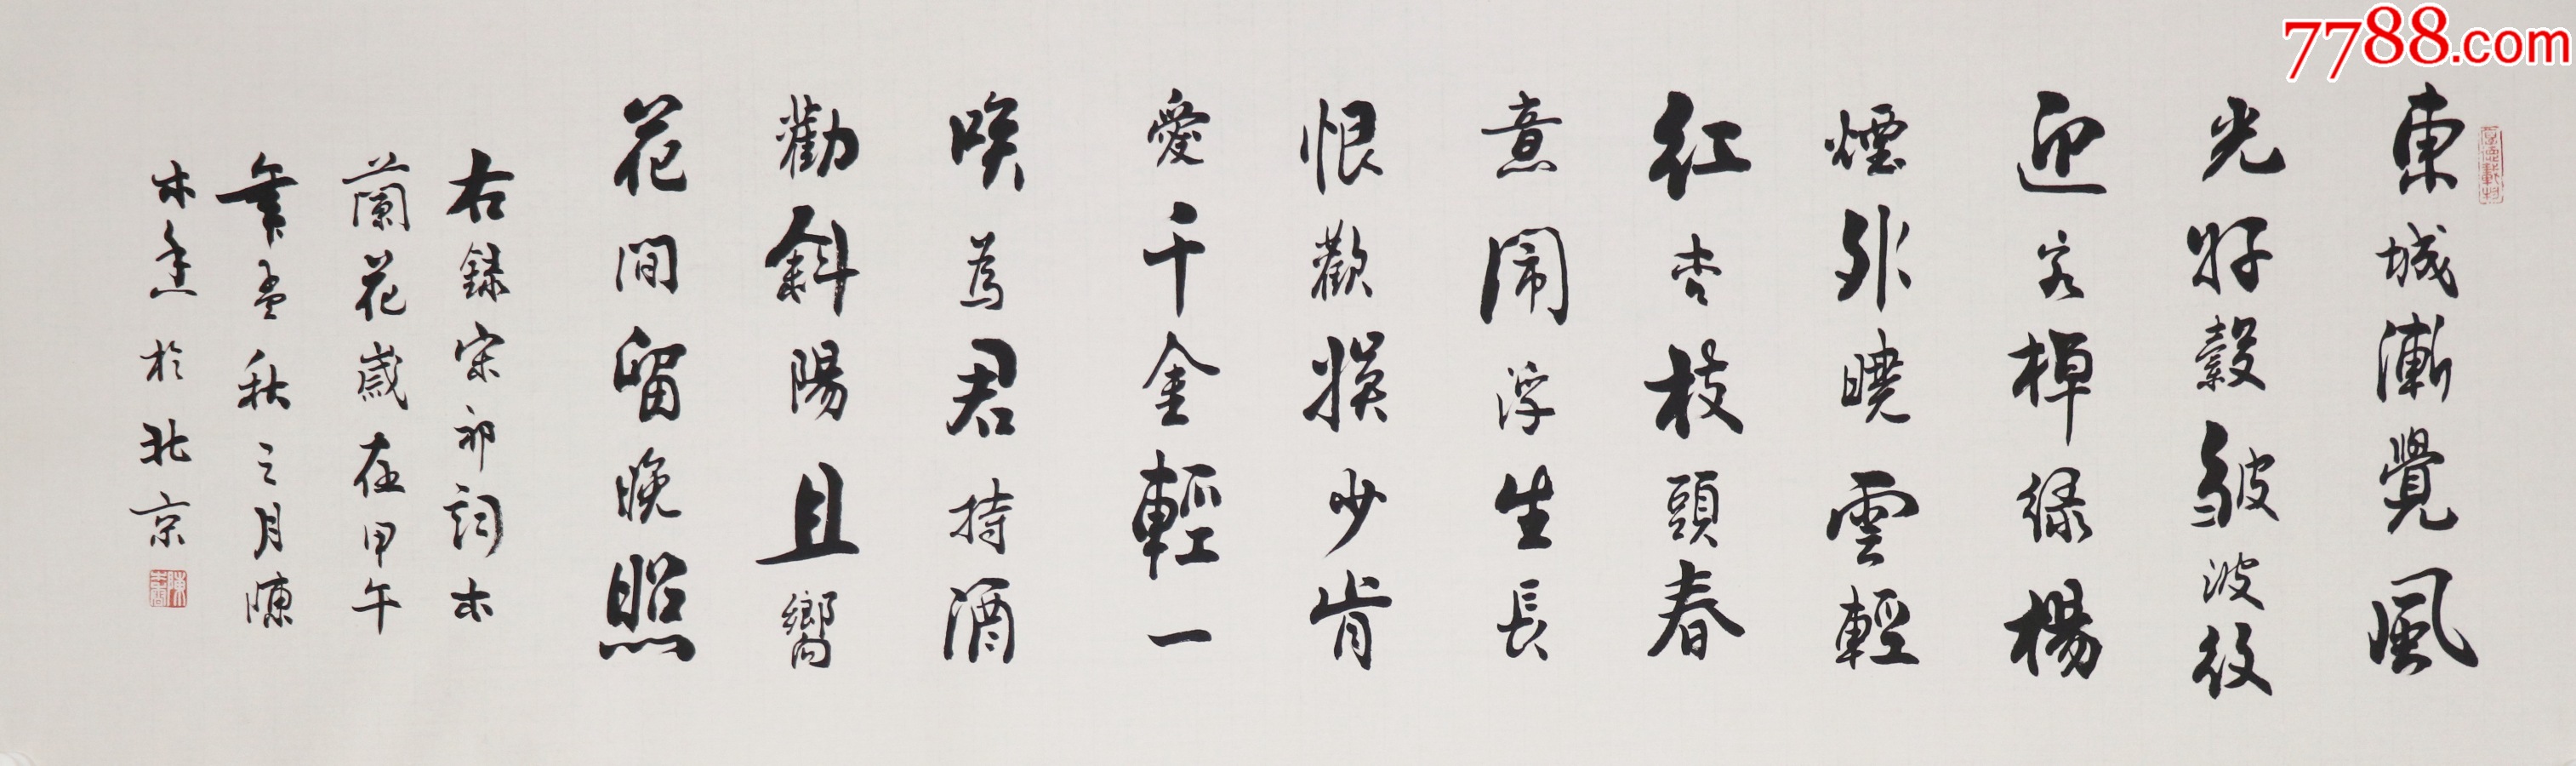 7788.com
厚德載物
東城漸覺風
光好縠皺波紋
迎客棹緑楊
煙外曉雲輕
紅杏枝頭春
意閙浮生長
恨歡娱少肯
愛千金輕一
咲為君持酒
勸斜陽且嚮
花間留晚照
右録宋祁詞木
蘭花歲在甲午
年孟秋之月陳
木於北京